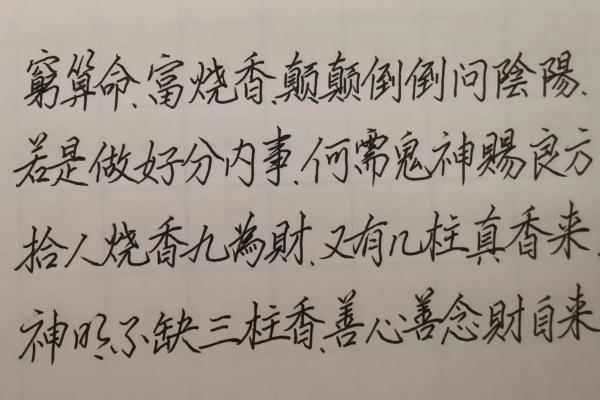 窮算命、富烧香、颠颠倒倒问陰陽、
若是做好分内事、何需鬼神賜良方
拾人烧香九為財、又有几柱真香来、
神明不缺三柱香、善心善念財自来